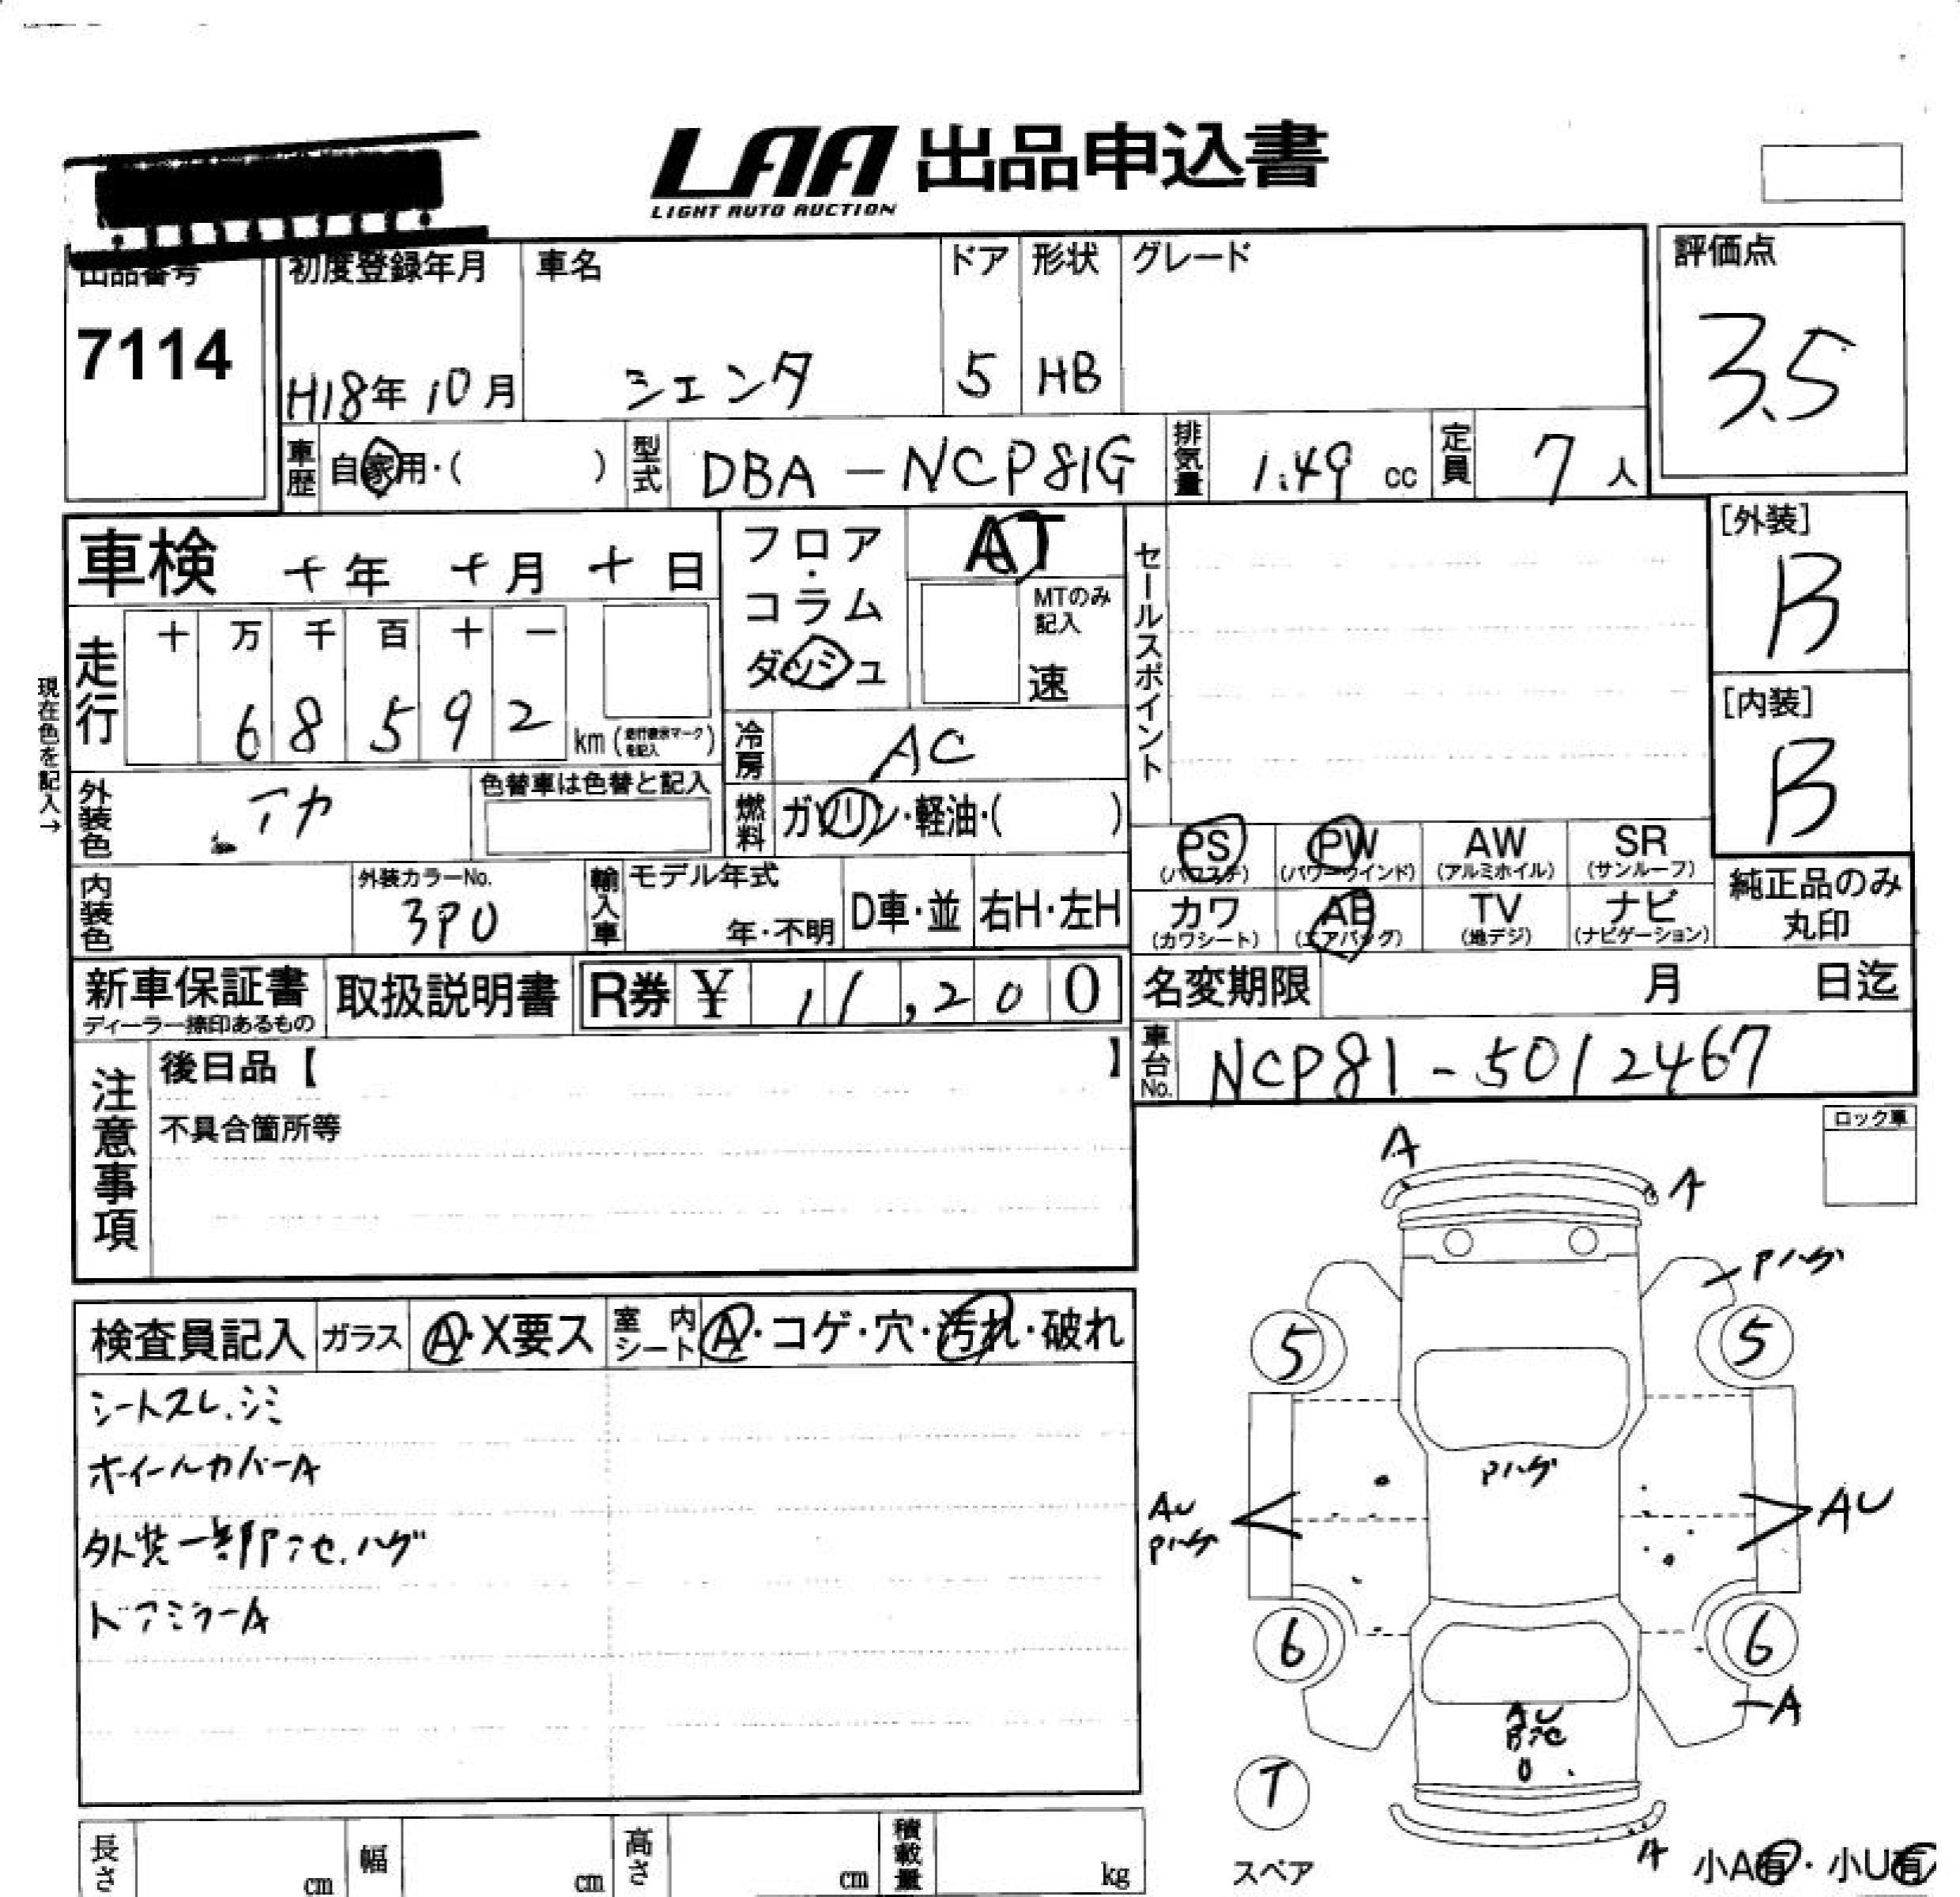 LAA 出品申込書
LIGHT AUTO AUCTION
出品番号
7114
初度登録年月
H18年 10月
車名
シエンタ
ドア
5
形状
HB
グレード
評価点
3.5
車歴
自家用・( )
型式
DBA-NCP81G
排気量
1.49 cc
定員
7 人
車検 年 月 日
フロア・コラム
ダッシュ
AT
MTのみ記入
速
セールスポイント
[外装]
B
[内装]
B
現在色を記入→
走行
十 万 千 百 十 一
6 8 5 9 2
km (走行表示マークを記入)
冷房
AC
外装色
アカ
色替車は色替と記入
燃料
ガソリン・軽油・( )
内装色
外装カラーNo.
3P0
輸入車
モデル年式
年・不明
D車・並
右H・左H
PS
(パワステ)
PW
(パワーウインド)
AW
(アルミホイル)
SR
(サンルーフ)
カワ
(カワシート)
AB
(エアバッグ)
TV
(地デジ)
ナビ
(ナビゲーション)
純正品のみ
丸印
新車保証書
ディーラー捺印あるもの
取扱説明書
R券 ¥ 11,200
名変期限 月 日迄
車台No.
NCP81-5012467
注意事項
後日品【 】
不具合箇所等
ロック車
検査員記入
ガラス
A・X要ス
室内シート
A・コゲ・穴・汚れ・破れ
シートスレ、シミ
ホイールカバーA
外装一部アセ、ハゲ
ドアミラーA
A
A
Pハゲ
5
5
Pハゲ
AU
Pハゲ
AU
6
6
A
AU
T
スペア
A
小A有・小U有
長さ cm
幅 cm
高さ cm
積載量 kg